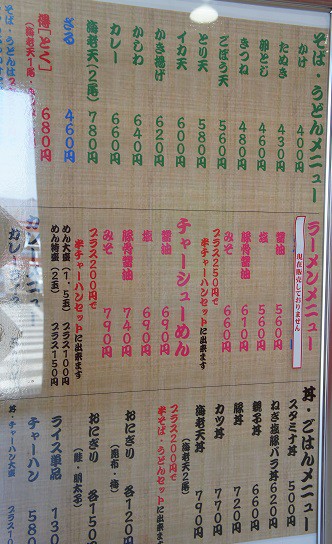 そば・うどんメニュー
かけ 400円
たぬき 430円
卵とじ 460円
きつね 480円
ごぼう天 560円
とり天 580円
イカ天 600円
かき揚げ 620円
かしわ 640円
カレー 660円
海老天(2尾) 780円
ざる 460円
得[とく] 680円
ラーメンメニュー
現在販売しておりません
醤油 560円
塩 560円
豚骨醤油 610円
みそ 660円
プラス250円で
半チャーハンセットに出来ます
チャーシューめん
醤油 690円
塩 690円
豚骨醤油 740円
みそ 790円
プラス200円で
半チャーハンセットに出来ます
めん大盛(1.5玉) プラス100円
めん特盛(2玉) プラス150円
丼・ごはんメニュー
スタミナ丼 500円
ねぎ塩豚バラ丼 620円
親子丼 660円
豚丼 720円
カツ丼 770円
海老天丼 790円
(海老天2尾)
プラス200円で
半そば・うどんセットに出来ます
おにぎり 各120円
(昆布・梅)
おにぎり 各150円
(鮭・明太子)
ライス単品 130
チャーハン 580
丼・チャーハン大盛 プラス10